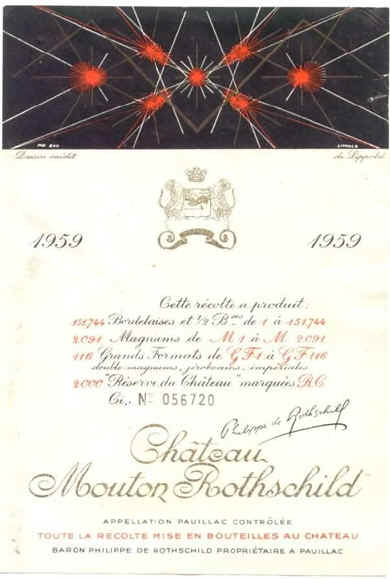 Dessin inédit de Lippold
1959 1959
Cette récolte a produit:
151744 Bordelaises et ½ Bses de 1 à 151744
2091 Magnums de M 1 à M 2091
116 Grands Formats de G F 1 à G F 116
double magnums, jéroboams, impériales
2000 "Réserve du Château" marquées R.C
Ci, No 056720
Philippe de Rothschild
Château
Mouton Rothschild
APPELLATION PAUILLAC CONTRÔLÉE
TOUTE LA RÉCOLTE MISE EN BOUTEILLES AU CHATEAU
BARON PHILIPPE DE ROTHSCHILD PROPRIÉTAIRE A PAUILLAC